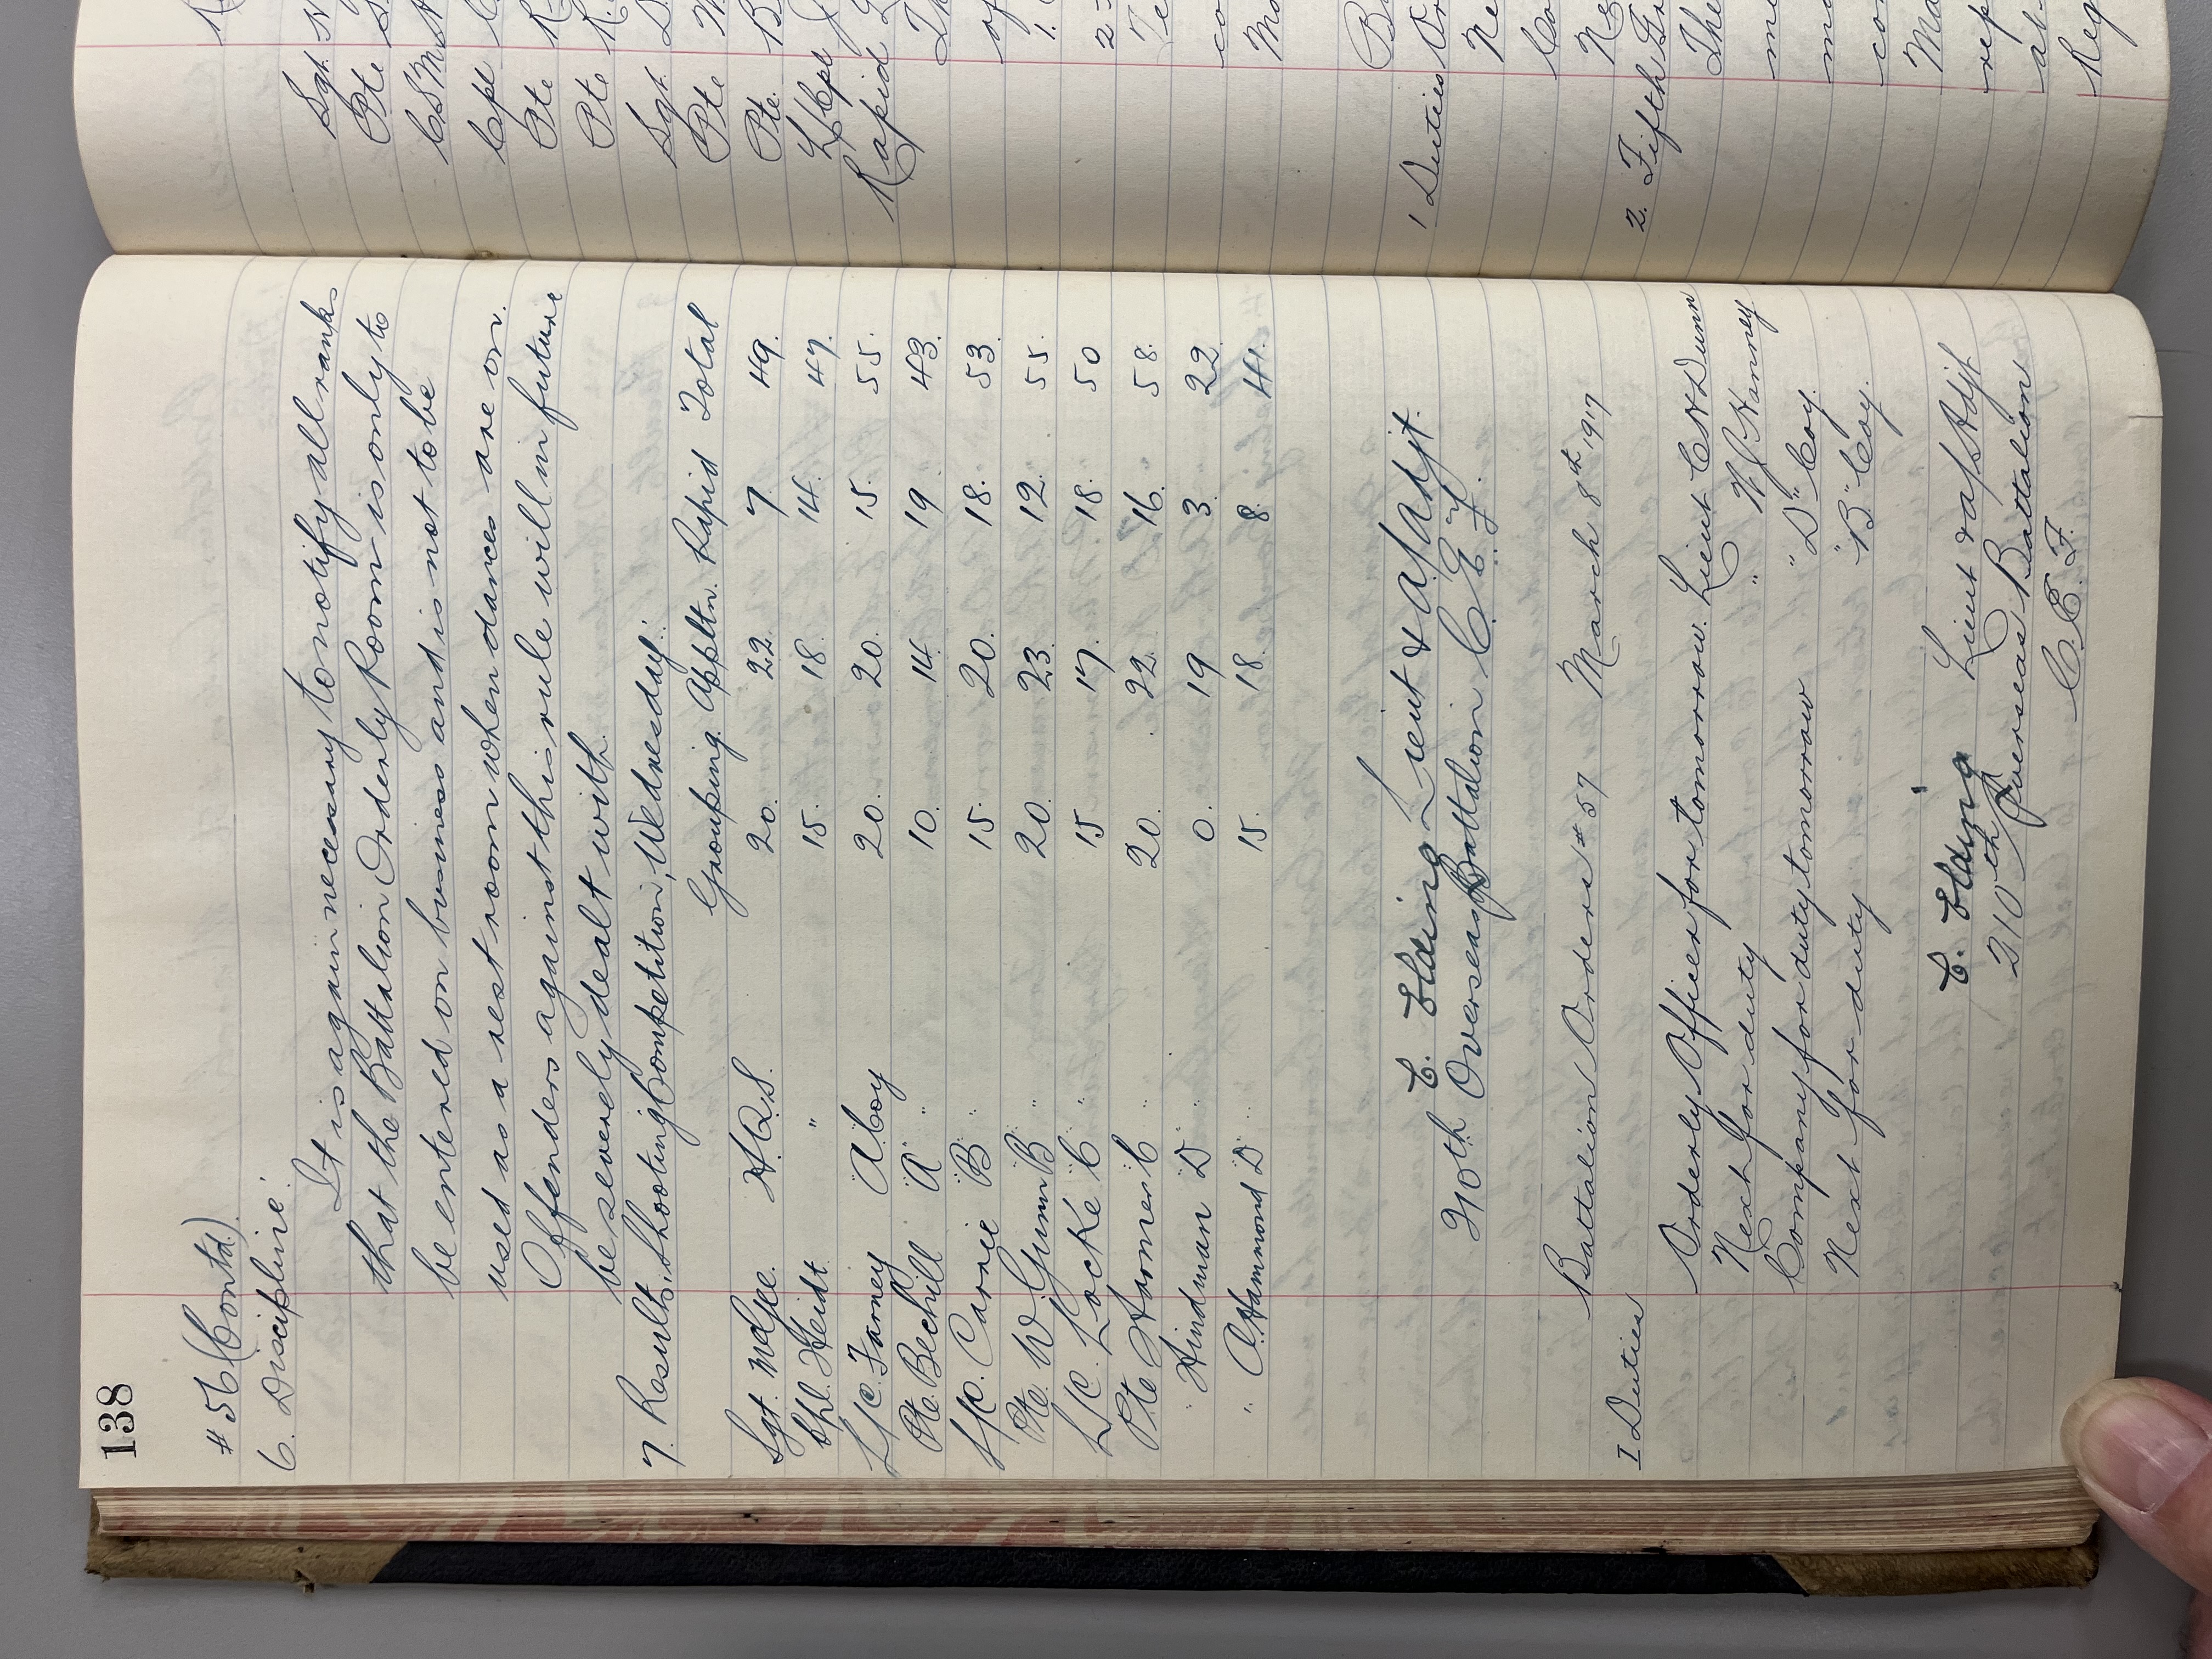 138
# 56 (Contd.)
6. Discipline.
It is again necessary to notify all ranks
that the Battalion Orderly Room is only to
be entered on business and is not to be
used as a rest room when dances are on.
Offenders against this rule will in future
be severely dealt with.
7. Results, Shooting Competition, Wednesday.
Grouping. Appltn. Rapid Total
Sgt. McGee. H.Q.S. 20. 22. 7. 49.
Cpl. Heidt. " 15. 18. 14. 47.
L/C. Farney "A" Coy 20. 20. 15. 55.
Pte. Bechill "A" " 10. 14. 19. 43.
L/C. Carrie "B" " 15. 20. 18. 53.
Pte. W Gunn "B" " 20. 23. 12. 55.
L/C. Locke "C" " 15 17. 18. 50
Pte Harmer "C" " 20. 22. 16. 58.
" Hindman "D" " 0. 19 3. 22.
" O. Hammond "D" " 15. 18. 8. 41.
C. Elding Lieut & a/Adjt.
210th Overseas Battalion C.E.F.
Battalion Orders # 57 March 8th 1917
1 Duties
Orderly Officer for tomorrow. Lieut C N Dunn
Next for duty " W J Hanney
Company for duty tomorrow "D" Coy.
Next for duty "B" Coy.
C. Elding Lieut & a/Adjt
210th Overseas Battalion
C.E.F.
Sgt.
Pte
C.S.M.
Cpl
Pte
Pte
Sgt.
Pte
Pte.
L/Cpl
Rapid
of
1.
2
co
1 Duties
Ne
2. Fifth
The
me
ma
co
Ma
rep
at
Reg